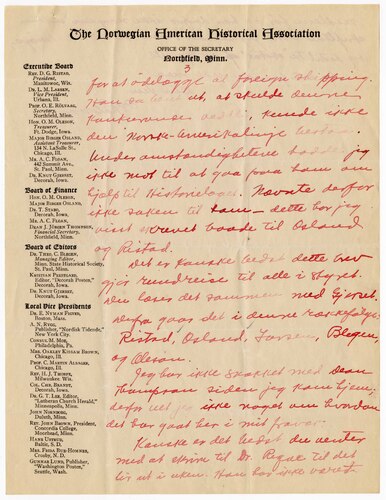 The Norwegian American Historical Association
OFFICE OF THE SECRETARY
Northfield, Minn.
3
Executive Board
REV. D. G. RISTAD,
President,
Manitowoc, Wis.
DR. L. M. LARSEN,
Vice President,
Urbana, Ill.
PROF. O. E. RÖLVAAG,
Secretary,
Northfield, Minn.
HON. O. M. OLESON,
Treasurer,
Ft. Dodge, Iowa.
MAJOR BIRGER OSLAND,
Assistant Treasurer,
134 N. LaSalle St.,
Chicago, Ill.
MR. A. C. FLOAN,
442 Summit Ave.,
St. Paul, Minn.
DR. KNUT GJERSET,
Decorah, Iowa.
Board of Finance
HON. O. M. OLESON,
MAJOR B. OSLAND,
DR. T. STABO,
Decorah, Iowa.
MR. A. C. FLOAN,
DEAN J. JÖRGEN THOMPSON,
Financial Secretary,
Northfield, Minn.
Board of Editors
DR. THEO. C. BLEGEN,
Managing Editor,
Minn. State Historical Society,
St. Paul, Minn.
KRISTIAN PRESTGARD,
Editor, "Decorah Posten,"
Decorah, Iowa.
DR. KNUT GJERSET,
Decorah, Iowa.
Local Vice Presidents
DR. E. NUMAN FISHER,
Boston, Mass.
A. N. RYGG,
Publisher, "Nordisk Tidende,"
New York City.
CONSUL M. MOE,
Philadelphia, Pa.
MRS. OAKLEY KISSAM BROWN,
Chicago, Ill.
PROF. C. MARTIN ALSAGER,
Chicago, Ill.
REV. H. J. THORPE,
Milwaukee, Wis.
COL. CHR. BRANDT,
Decorah, Iowa.
DR. G. T. LEE, Editor
"Lutheran Church Herald,"
Minneapolis, Minn.
JOHN NORSBOG,
Duluth, Minn.
REV. JOHN BROWN, President
Concordia College,
Moorhead, Minn.
HANS USTRUD,
Baltic, S. D.
MRS. FRIDA BUE-HOMNES,
Crosby, N. D.
GUNNAR LUND, Publisher,
"Washington Posten,"
Seattle, Wash.
for at ødelægge al foreign shipping.
ut, at skulde denne
kunde ikke
den Norsk-Amerikalinje
Under omstændigheterne har jeg
ikke mot til at gaa paa ham om
hjælp til Historielaget. Nævnte derfor
ikke saken til ham — dette har jeg
vist skrevet baade til Osland
og Ristad.
Det er kanske bedst dette brev
gjør rundreise til alle i Styret.
Du læser det sammen med Gjerset.
Derfra gaar det i denne rækkefølge:
Ristad, Osland, Larsen, Blegen,
og Oleson.
Jeg har ikke snakket med Dean
Thompson siden jeg kom hjem;
derfor vet jeg ikke noget om hvordan
det har gaat her i mit fravær.
Kanske er det bedst du venter
med at skrive til Dr. til det
lir ut i uken. Han har ikke været